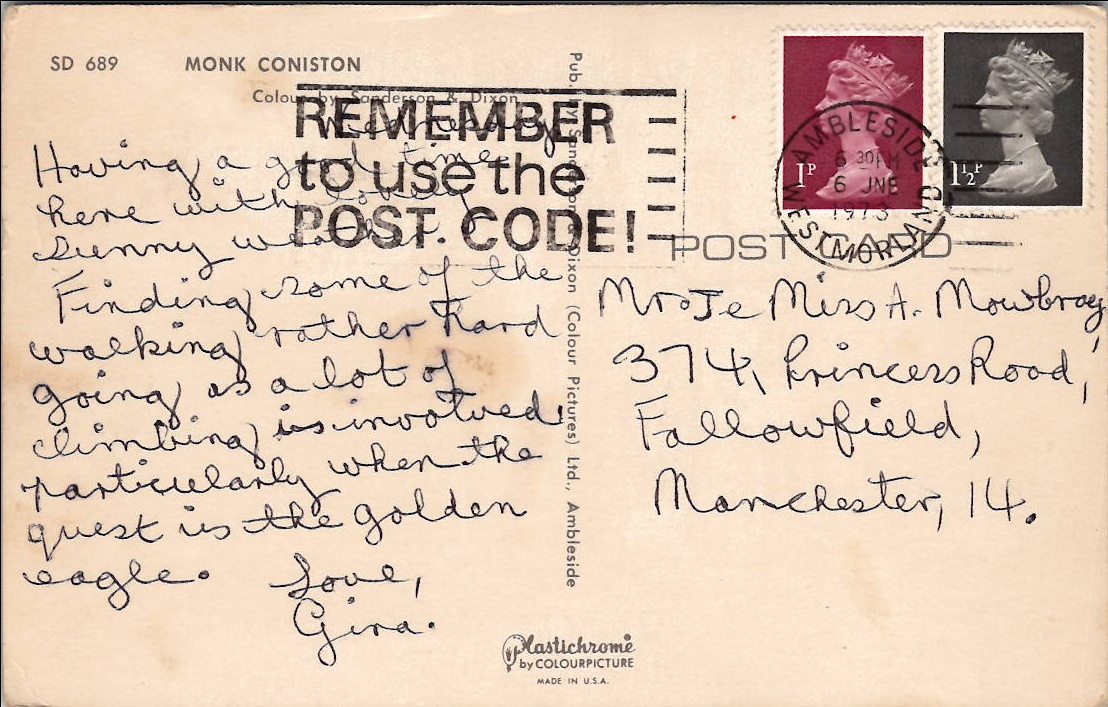 SD 689 MONK CONISTON
Colour by Sanderson & Dixon
REMEMBER
to use the
POST CODE!
Wednesday
Having a good time
here with lovely
sunny weather.
Finding some of the
walking rather hard
going as a lot of
climbing is involved
particularly when the
quest is the golden
eagle. Love,
Gina.
Pub. by Sanderson & Dixon (Colour Pictures) Ltd., Ambleside
1P
1½P
AMBLESIDE
6 30PM
6 JNE
1973
WESTMORLAND
POST CARD
Miss A. Mowbray,
374, Princess Road,
Fallowfield,
Manchester, 14.
Plastichrome
by COLOURPICTURE
MADE IN U.S.A.